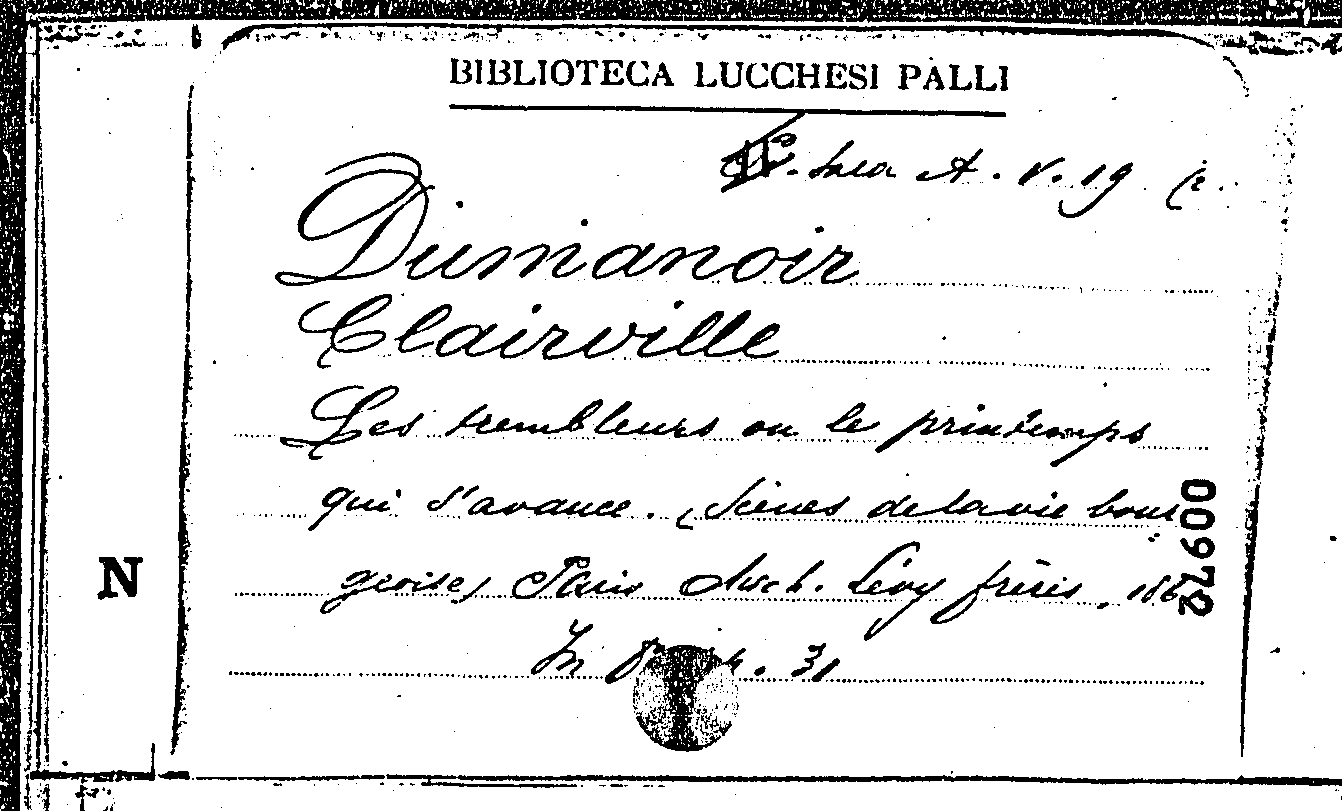 BIBLIOTECA LUCCHESI PALLI
Sala A. V. 19 (2.
Dumanoir
Clairville
Les trembleurs ou le printemps
qui s'avance. (Scènes de la vie bour
geoise) Paris Mich. Lévy frères, 186
In 31
N
00972